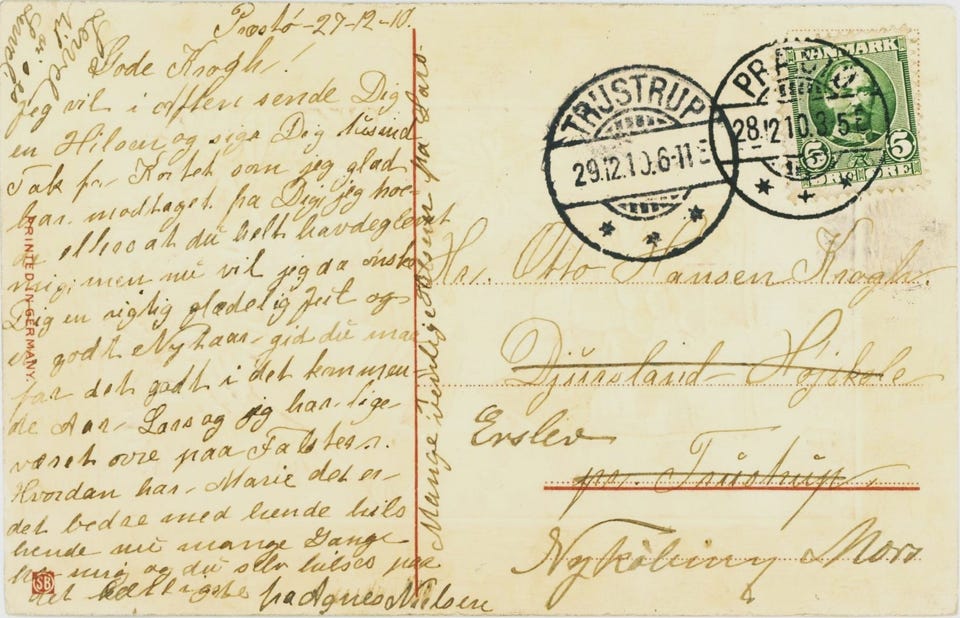 Præstø-27-12-10.
Gode Krogh!
Jeg vil i aften sende Dig
en Hilsen og sige Dig tusind
Tak for Kortet som jeg glad
har modtaget fra Dig, jeg
ellers at du helt havde glemt
mig, men nu vil jeg da ønske
Dig en rigtig glædelig Fest og
et godt Nytaar, gid du maa
faa det godt i det kommen-
de Aar. Lars og jeg har lige
været ovre paa Falster.
Hvordan har Marie det er
det bedre med hende hils
hende nu mange Gange
fra mig og du selv hilses paa
det kærligste fra Agnes Nielsen
Mange venlige Hilsener fra Lars
Levvel
PRINTED IN GERMANY.
SB
TRUSTRUP
29.12.10.6-11E
PRÆSTØ
28.12.10.3-5E
DANMARK
5 5
ØRE ØRE
Hr. Otto Hansen Krogh.
Djursland Højskole
Erslev
pr. Trustrup.
Nykøbing Mors